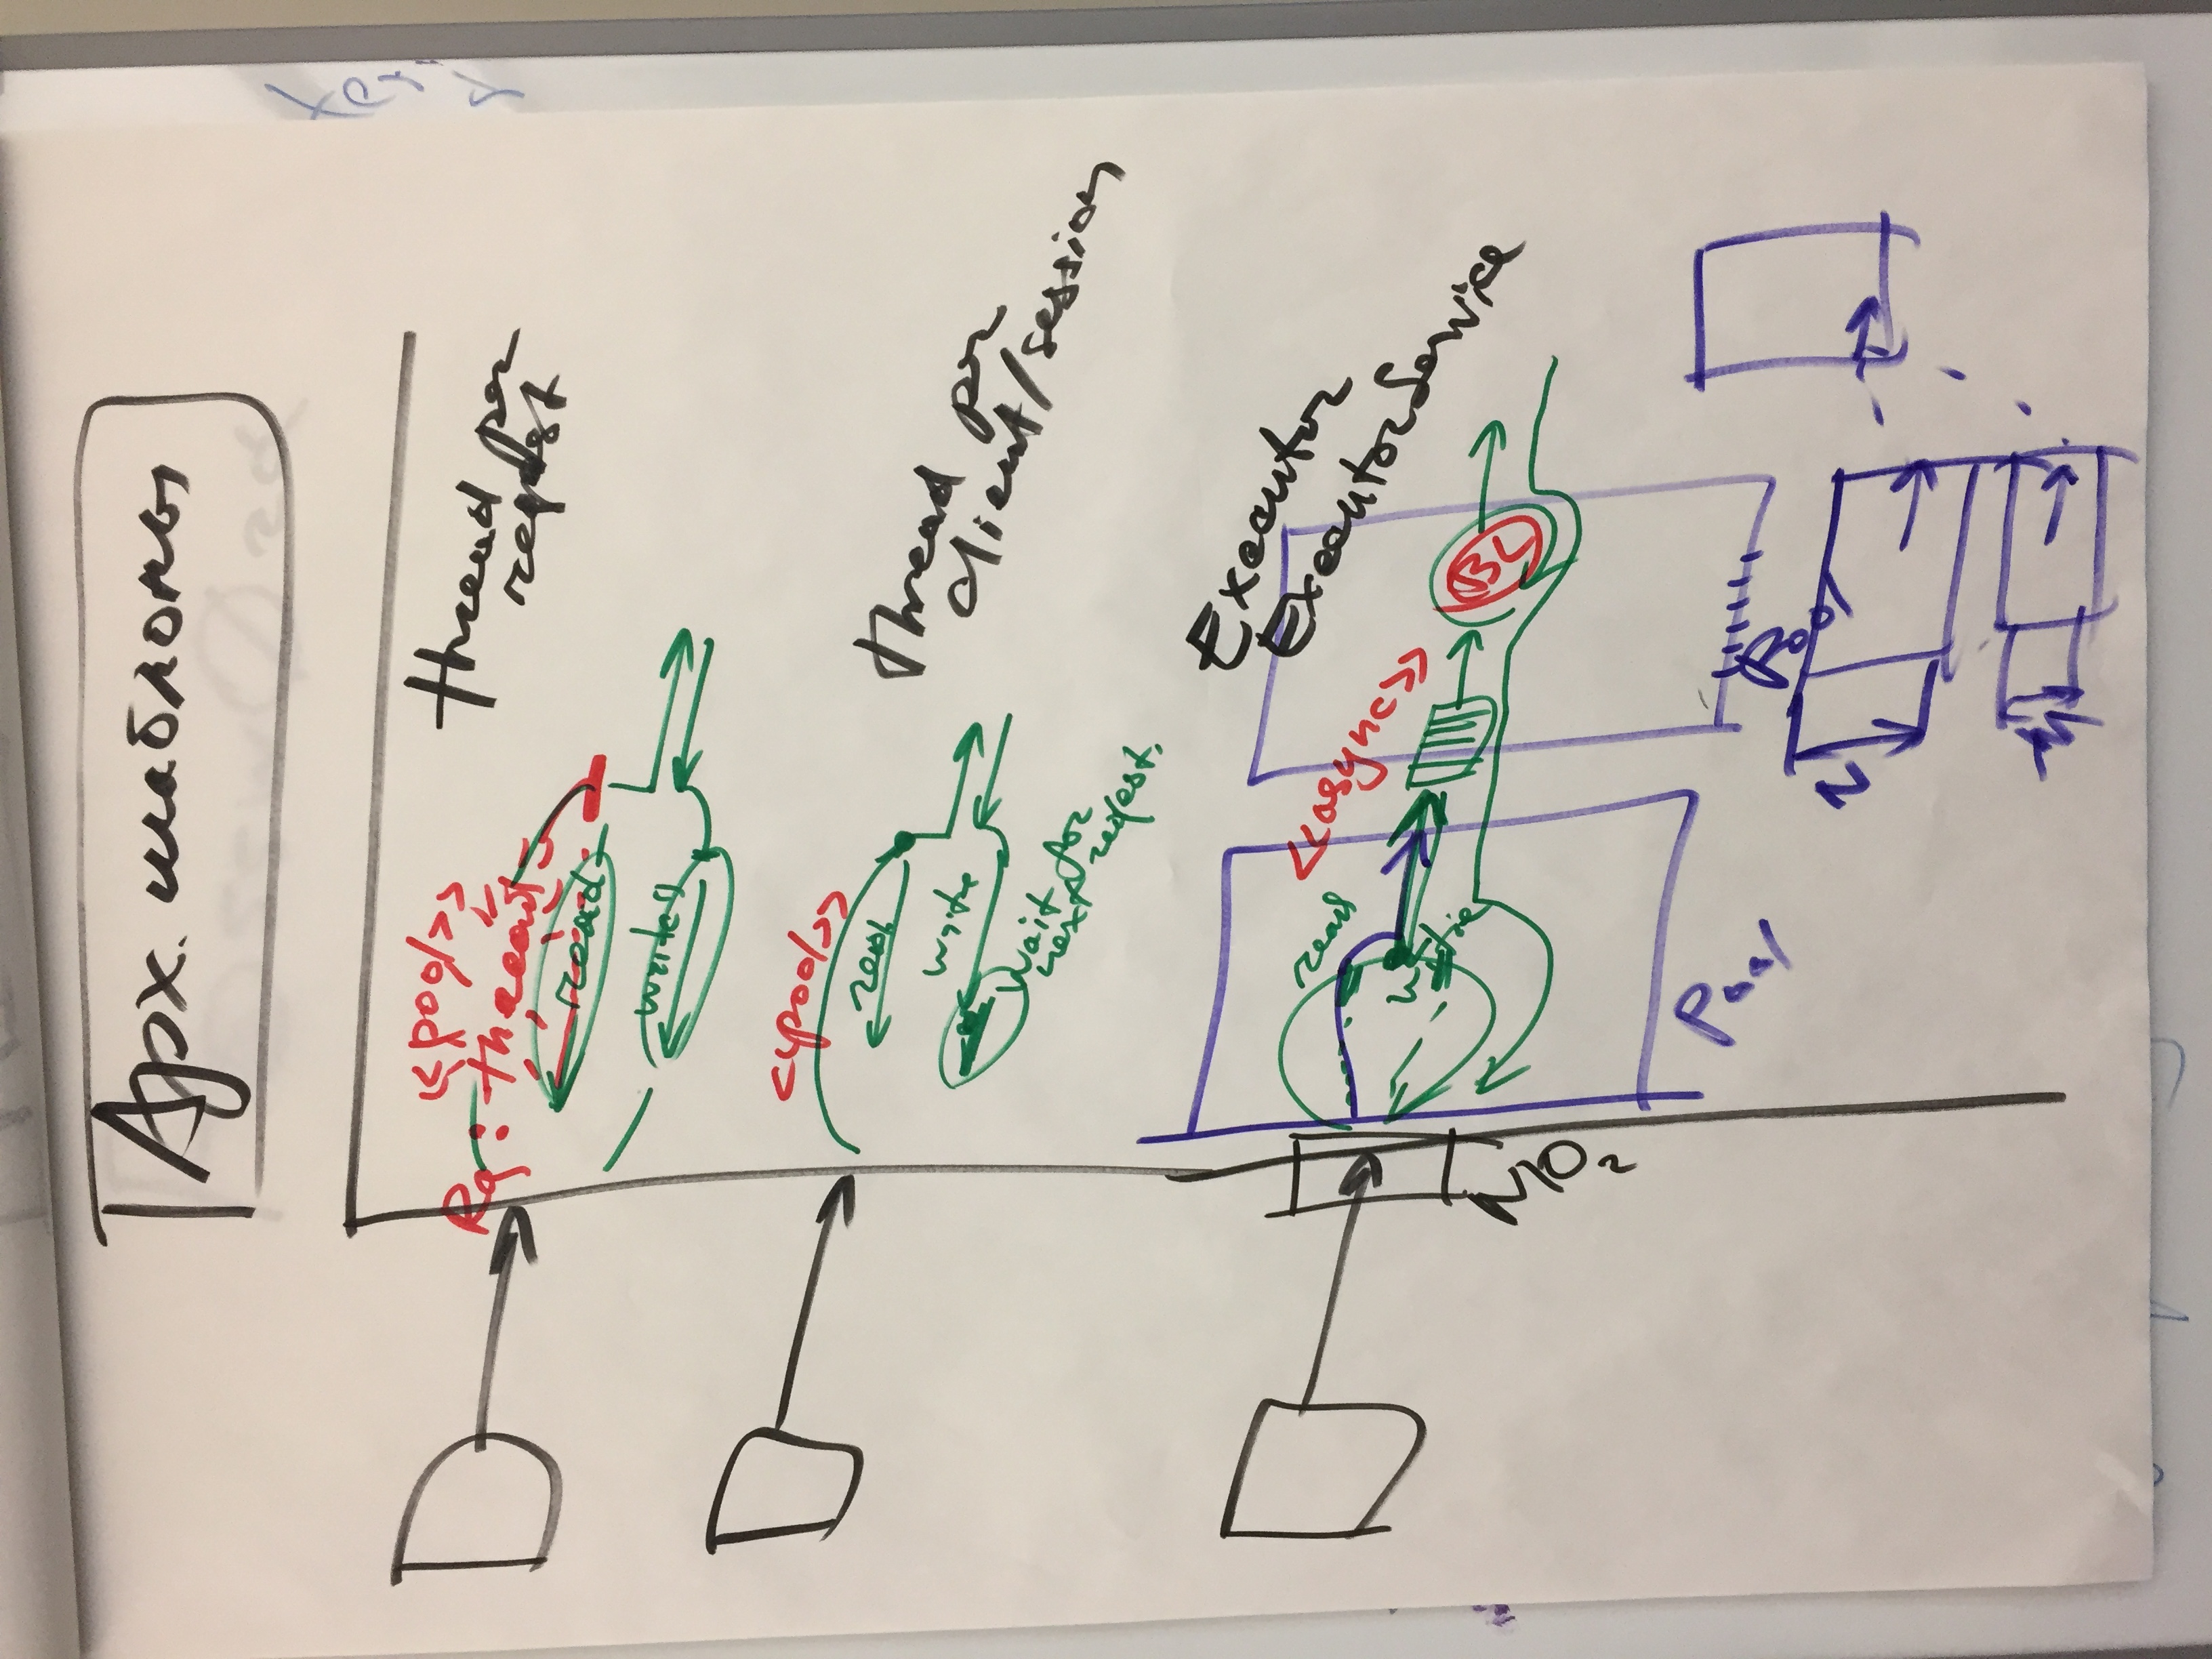 Арх. шаблоны
<<pool>>
Rq: thread
read
write()
thread per
request
<<pool>>
read
write
Wait for
next request.
thread per
client/session
Executor
ExecutorService
read
<<async>>
write
BL
NIO
2
Pool
Pool